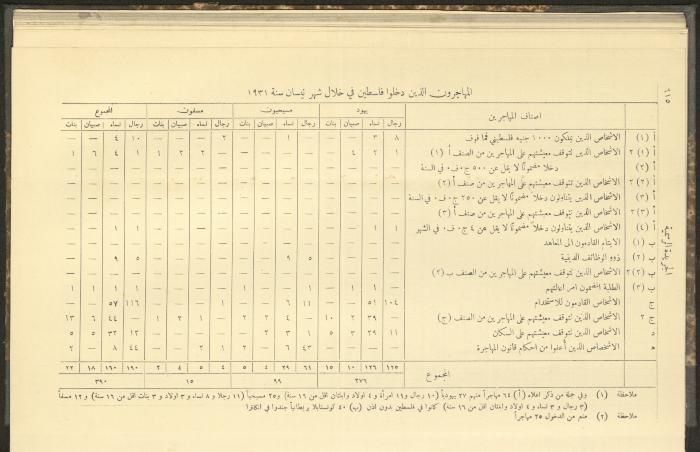 ٦١٥
الجريدة الرسمية
المهاجرون الذين دخلوا فلسطين في خلال شهر نيسان سنة ١٩٣١
اصناف المهاجرين يهود مسيحيون مسلمون المجموع
رجال نساء صبيان بنات رجال نساء صبيان بنات رجال نساء صبيان بنات رجال نساء صبيان بنات
أ (١) الاشخاص الذين يملكون ١٠٠٠ جنيه فلسطيني فما فوق ٨ ٣ — — — ١ — — ٢ — — — ١٠ ٤ — —
أ (١) ٢ الاشخاص الذين تتوقف معيشتهم على المهاجرين من الصنف أ (١)
أ (٢) دخلا مضمونًا لا يقل عن ٥٠٠ ج. ف. في السنة
أ (٢) ٢ الاشخاص الذين تتوقف معيشتهم على المهاجرين من صنف أ (٢)
أ (٣) الاشخاص الذين يتناولون دخلاً مضمونًا لا يقل عن ٢٥٠ ج. ف. في السنة
أ (٣) ٢ الاشخاص الذين تتوقف معيشتهم على المهاجرين من صنف أ (٣)
أ (٤) الاشخاص الذين يتناولون دخلاً مضمونًا لا يقل عن ٤ ج. ف. في الشهر ١ ١ — — — — — — — — — — ١ ١ — —
ب (١) الايتام القادمون الى المعاهد — — — — — — — — — — — — — — — —
ب (٢) ذوو الوظائف الدينية — — — — ٥ ٩ — — — — — — ٥ ٩ — —
ب (٢) ٢ الاشخاص الذين تتوقف معيشتهم على المهاجرين من الصنف ب (٢)
ب (٣) الطلبة المضمون امر اعالتهم
ج الاشخاص القادمون للاستخدام ١٠٤ ٥١ — — ١١ ٦ — — ١ — — — ١١٦ ٥٧ — —
ج ٢ الاشخاص الذين تتوقف معيشتهم على المهاجرين من الصنف (ج) — ٣٩ ٢ ١٠ — ٤ ٢ ٢ — ١ ٢ ١ — ٤٤ ٦ ١٣
د الاشخاص الذين تتوقف معيشتهم على السكان ١١ ٢٩ ٣ ٥ ١ ٣ ٢ — — — — — ١٢ ٣٢ ٥ ٥
ه الاشخاص الذين أعفوا من احكام قانون المهاجرة
المجموع ١٢٥ ١٢٦ ١٠ ١٥ ٦١ ٢٩ ٤ ٥ ٤ ٥ ٤ ٢ ١٩٠ ١٦٠ ١٨ ٢٢
٢٧٦ ٩٩ ١٥ ٣٩٠
ملاحظة (١) وفي جملة من ذكر اعلاه (أ) ٦٤ مهاجراً منهم ٢٧ يهودياً (١٠ رجال و١١ امرأة و ٤ اولاد وابنتان اقل من ١٦ سنة) و٢٥ مسيحياً (١١ رجلا و ٨ نساء و ٣ اولاد و ٣ بنات اقل من ١٦ سنة) و ١٢ مسلماً
(٣ رجال و ٣ نساء و ٤ اولاد وابنتان اقل من ١٦ سنة) كانوا في فلسطين بدون اذن (ب) ٤٠ كونستابلا بريطانياً جندوا في انكلترا
ملاحظة (٢) منع من الدخول ٢٥ مهاجراً